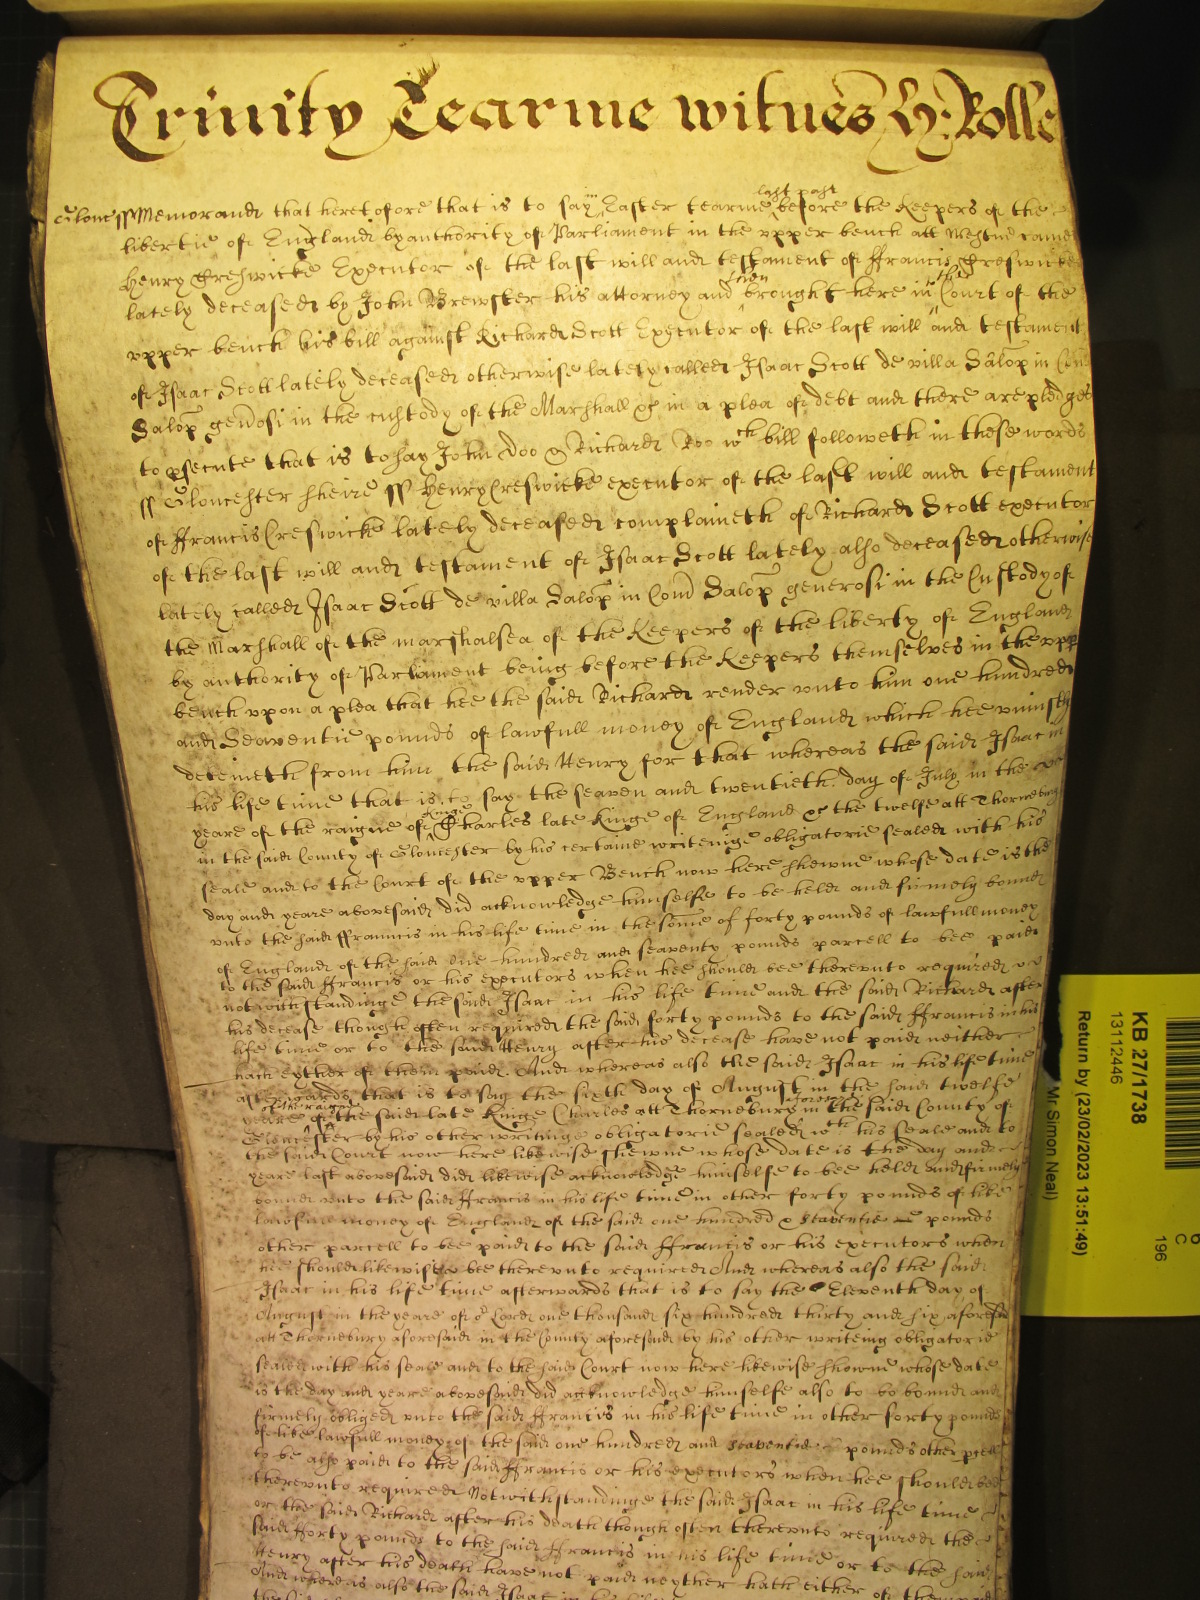 Trinity Tearme witnes H: Rolle
Glouc ss Memorand that heretofore that is to say in Easter tearme last past before the Keepers of the
libertie of England by authority of Parliament in the upper bench att Westmr came
Henry Creswicke Executor of the last will and testament of ffrancis Creswicke
lately deceased by John Brewster his attorney and then brought here in the Court of the
upper bench his bill against Richard Scott Executor of the last will and testament
of Isaac Scott lately deceased otherwise lately called Isaac Scott de villa Salop in Com
Salop generosi in the custody of the Marshall &c in a plea of debt and there are pledges
to psecute that is to say John Doo & Richard Roo wch bill followeth in these words
ss Gloucester sheire ss Henry Creswicke executor of the last will and testament
of ffrancis Creswicke lately deceased complaineth of Richard Scott executor
of the last will and testament of Isaac Scott lately also deceased otherwise
lately called Isaac Scott de villa Salop in Com Salop generosi in the Custody of
the Marshall of the marshalsea of the Keepers of the liberty of England
by authority of Parliament being before the Keepers themselves in the upp
bench upon a plea that hee the said Richard render unto him one hundred
and Seaventie pounds of lawfull money of England which hee uniustly
deteineth from him the said Henry for that whereas the said Isaac in
his life time that is to say the seaven and twentieth day of July in the
yeare of the raigne of Kinge Charles late Kinge of England &c the twelfe att Thornebury
in the said County of Gloucester by his certaine writeinge obligatorie sealed with his
seale and to the Court of the upper Bench now here shewne whose date is the
day and yeare abovesaid did acknowledge himselfe to be held and firmely bound
unto the said ffrancis in his life time in the some of forty pounds of lawfull money
of England of the said one hundred and seaventy pounds parcell to bee paid
to the said ffrancis or his executors when hee should bee thereunto required
notwithstandinge the said Isaac in his life time and the said Richard after
his decease though often required the said forty pounds to the said ffrancis in his
life time or to the said Henry after his decease have not paid neither
hath eyther of them paid. And whereas also the said Isaac in his life time
afterwards that is to say the sixth day of August in the said twelfe
yeare of the raigne of the said late Kinge Charles att Thornebury aforesaid in the said County of
Gloucester by his other writinge obligatorie sealed wth his seale and to
the said Court now here likewise shewne whose date is the day and
yeare last abovesaid did likewise acknowledge himselfe to bee held and firmely
bound unto the said ffrancis in his life time in other forty pounds of like
lawfull money of England of the said one hundred & Seaventie pounds
other parcell to bee paid to the said ffrancis or his executors when
hee should likewise bee thereunto required And whereas also the said
Isaac in his life time afterwards that is to say the Eleventh day of
August in the yeare of or Lord one thousand six hundred thirty and six aforesaid
att Thornebury aforesaid in the County aforesaid by his other writeing obligatorie
sealed with his seale and to the said Court now here likewise showne whose date
is the day and yeare abovesaid did acknowledge himselfe also to be bound and
firmely obliged unto the said ffrancis in his life time in other forty pounds
of like lawfull money of the said one hundred and seaventie pounds other pcell
to be also paid to the said ffrancis or his executors when hee should bee
thereunto required Notwithstandinge the said Isaac in his life time
or the said Richard after his death though often thereunto required the
said fforty pounds to the said ffrancis in his life time or to the said
Henry after his death have not paid neyther hath either of them paid
And whereas also the said Isaac in his
KB 27/1738
13112446
Return by (23/02/2023 13:51:49)
Mr. Simon Neal)
6
C
196